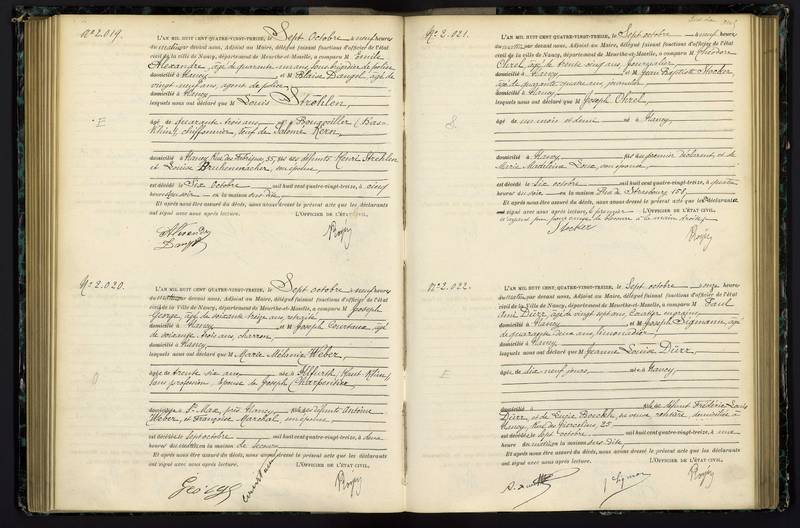 N° 2.019.
L'AN MIL HUIT CENT QUATRE-VINGT-TREIZE, le Sept Octobre à neuf heures
du matin par devant nous, Adjoint au Maire, délégué faisant fonctions d'officier de l'état
civil de la ville de Nancy, département de Meurthe-et-Moselle, a comparu M Emile
Alexandre, âgé de quarante un ans, sous brigadier de police
domicilié à Nancy et M Blaise âgé de
vingt neuf ans, agent de police
domicilié à Nancy
lesquels nous ont déclaré que M Louis Ströhlen,
E
âgé de quarante trois ans né à Bouxwiller (Bas-
Rhin), chiffonnier, veuf de Salomé Kern,
domicilié à Nancy Rue des Fabriques 35, fils de défunts Henri Ströhlen
et Louise son épouse,
est décédé le Six Octobre mil huit cent quatre-vingt-treize, à cinq
heures du soir en la maison sus-dite,
Et après nous être assuré du décès, nous avons dressé le présent acte que les déclarants
ont signé avec nous après lecture. L'OFFICIER DE L'ÉTAT CIVIL.
N° 2.020.
L'AN MIL HUIT CENT QUATRE-VINGT-TREIZE, le Sept octobre à neuf heures
du matin par devant nous, Adjoint au Maire, délégué faisant fonctions d'officier de l'état
civil de la Ville de Nancy, département de Meurthe-et-Moselle, a comparu M Joseph
George, âgé de soixante treize ans, retraité
domicilié à Nancy et M Joseph Courtaux, âgé
de soixante trois ans, charron,
domicilié à Nancy
lesquels nous ont déclaré que M Marie Mélanie Weber,
O
âgée de trente six ans née à Illfurth (Haut-Rhin)
sans profession, épouse de Joseph Charpentier,
domiciliée à St Max, près Nancy fille de défunts Antoine
Weber, et Françoise Marchal, son épouse
est décédée le sept octobre mil huit cent quatre-vingt-treize, à deux
heures du matin en la maison de Secours
Et après nous être assuré du décès, nous avons dressé le présent acte que les déclarants
ont signé avec nous après lecture. L'OFFICIER DE L'ÉTAT CIVIL.
George
N° 2.021.
L'AN MIL HUIT CENT QUATRE-VINGT-TREIZE, le Sept octobre à neuf heures
du matin par devant nous, Adjoint au Maire, délégué faisant fonctions d'officier de l'état
civil de la ville de Nancy, département de Meurthe-et-Moselle, a comparu M Théodore
Ohrel, âgé de trente cinq ans, journalier,
domicilié à Nancy et M Jean Baptiste Stocker
âgé de quarante quatre ans, journalier,
domicilié à Nancy,
lesquels nous ont déclaré que M Joseph Ohrel,
S.
âgé de un mois et demi né à Nancy,
domicilié à Nancy fils du premier déclarant, et de
Marie Madeleine son épouse,
est décédé le six octobre mil huit cent quatre-vingt-treize, à quatre
heures du soir en la maison Rue de Strasbourg 151,
Et après nous être assuré du décès, nous avons dressé le présent acte que les déclarants
ont signé avec nous après lecture, le premier L'OFFICIER DE L'ÉTAT CIVIL.
Stocker
N° 2.022.
L'AN MIL HUIT CENT QUATRE-VINGT-TREIZE, le Sept octobre à onze heures
du matin par devant nous, Adjoint au Maire, délégué faisant fonctions d'officier de l'état
civil de la Ville de Nancy, département de Meurthe-et-Moselle, a comparu M Paul
Dürr, âgé de vingt sept ans,
domicilié à Nancy et M Joseph Sigmann, âgé
de quarante deux ans, limonadier
domicilié à Nancy
lesquels nous ont déclaré que M Jeanne Louise Dürr,
E
âgée de dix neuf jours, née à Nancy,
domiciliée à fille de défunt Frédéric Louis
Dürr, et de Lucie sa veuve rentière, domiciliée à
Nancy, Rue des Tiercelins, 25
est décédée le sept octobre mil huit cent quatre-vingt-treize, à une
heure du matin en la maison sus-dite,
Et après nous être assuré du décès, nous avons dressé le présent acte que les déclarants
ont signé avec nous après lecture. L'OFFICIER DE L'ÉTAT CIVIL.